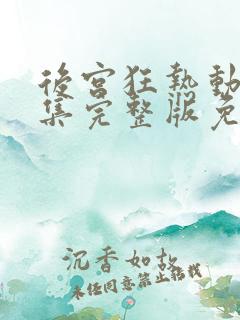 後宮狂熱動
集完整版免
沉香如故
未经同意禁止搭载